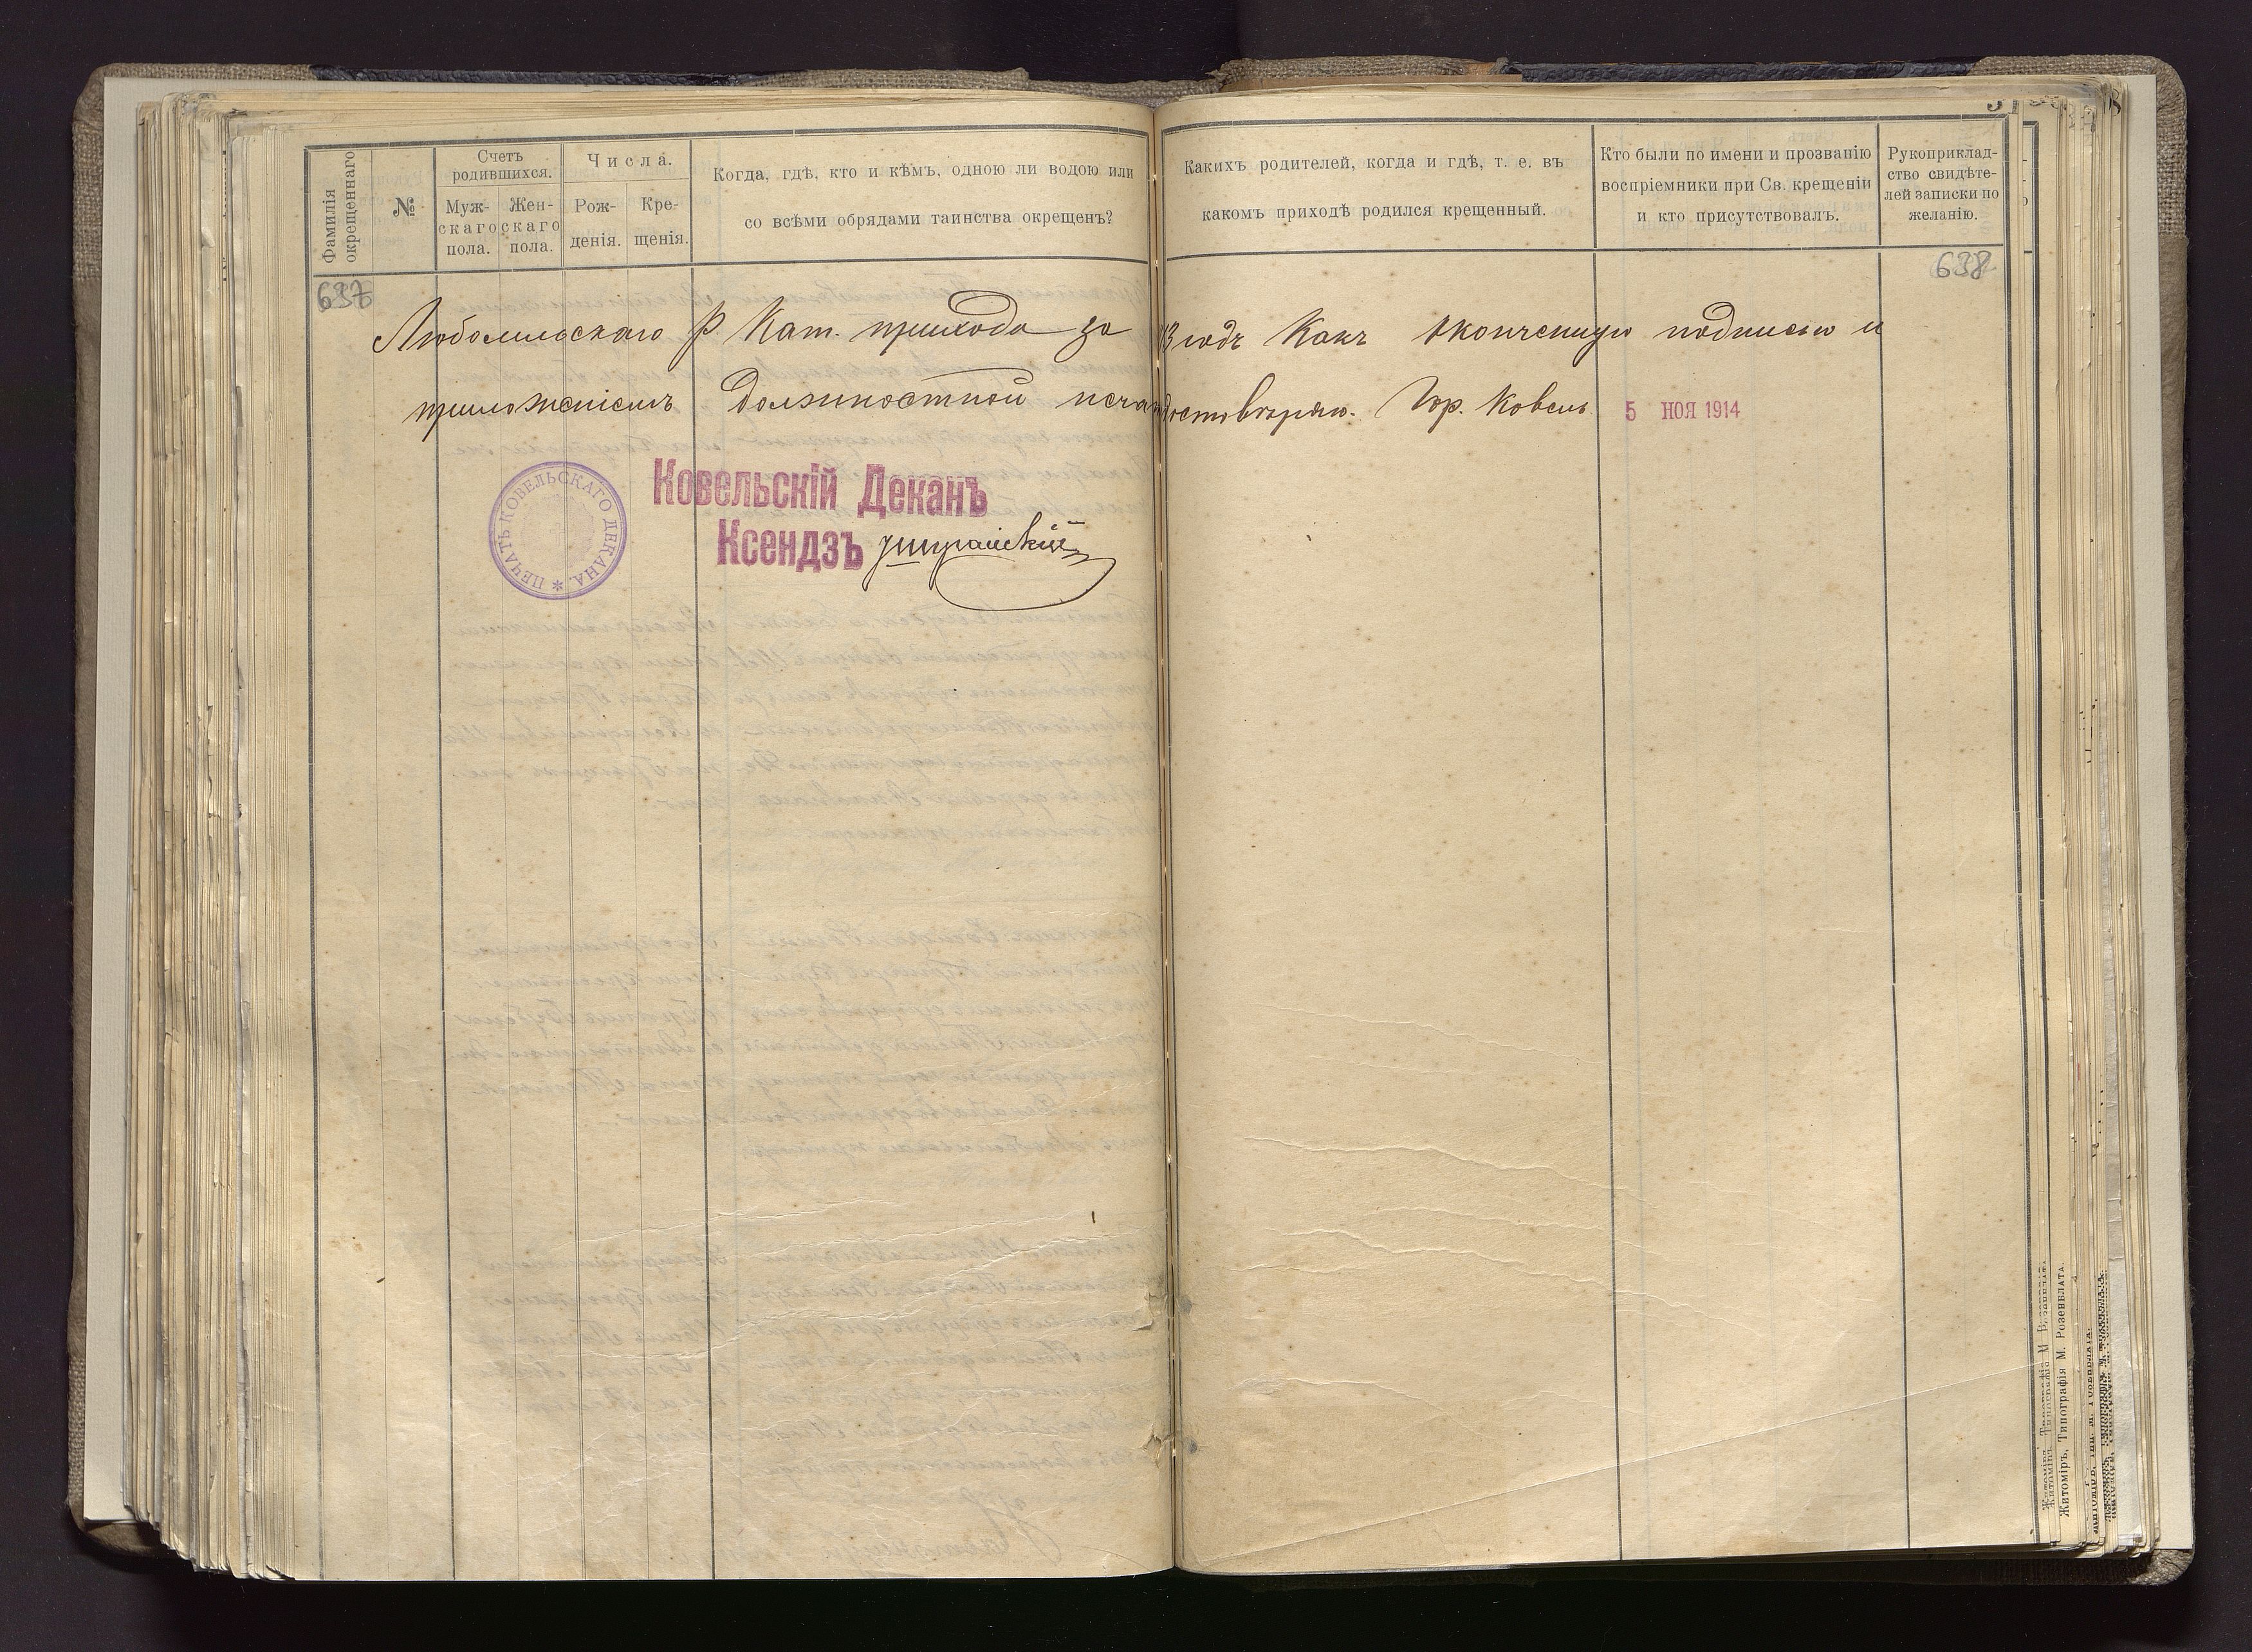 Фамилія окрещеннаго
№
Счетъ родившихся.
Муж-
скаго
пола.
Жен-
скаго
пола.
Числа.
Рож-
денія.
Кре-
щенія.
Когда, гдѣ, кто и кѣмъ, одною ли водою или
со всѣми обрядами таинства окрещенъ?
Какихъ родителей, когда и гдѣ, т. е. въ
какомъ приходѣ родился крещенный.
Кто были по имени и прозванію
воспріемники при Св. крещеніи
и кто присутствовалъ.
Рукоприклад-
ство свидѣте-
лей записки по
желанію.
637
638
Любомльскаго Р. Кат. прихода за 13 годъ какъ оконченную подписью и
приложеніемъ должностной достовѣряю. Гор. Ковель 5 НОЯ 1914
ПЕЧАТЬ КОВЕЛЬСКАГО ДЕКАНА.
Ковельскій Деканъ
Ксендзъ
Житоміръ, Типографія М. Розенблата.